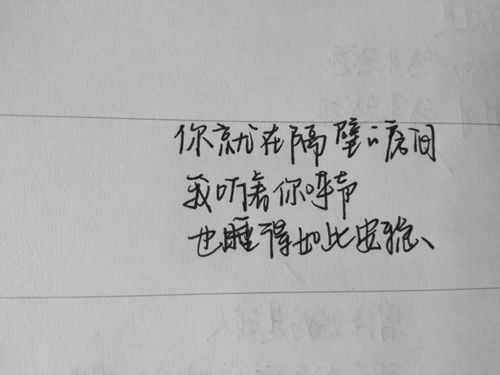 你就在隔壁的房间
我听着你呼吸
也睡得如此安稳、